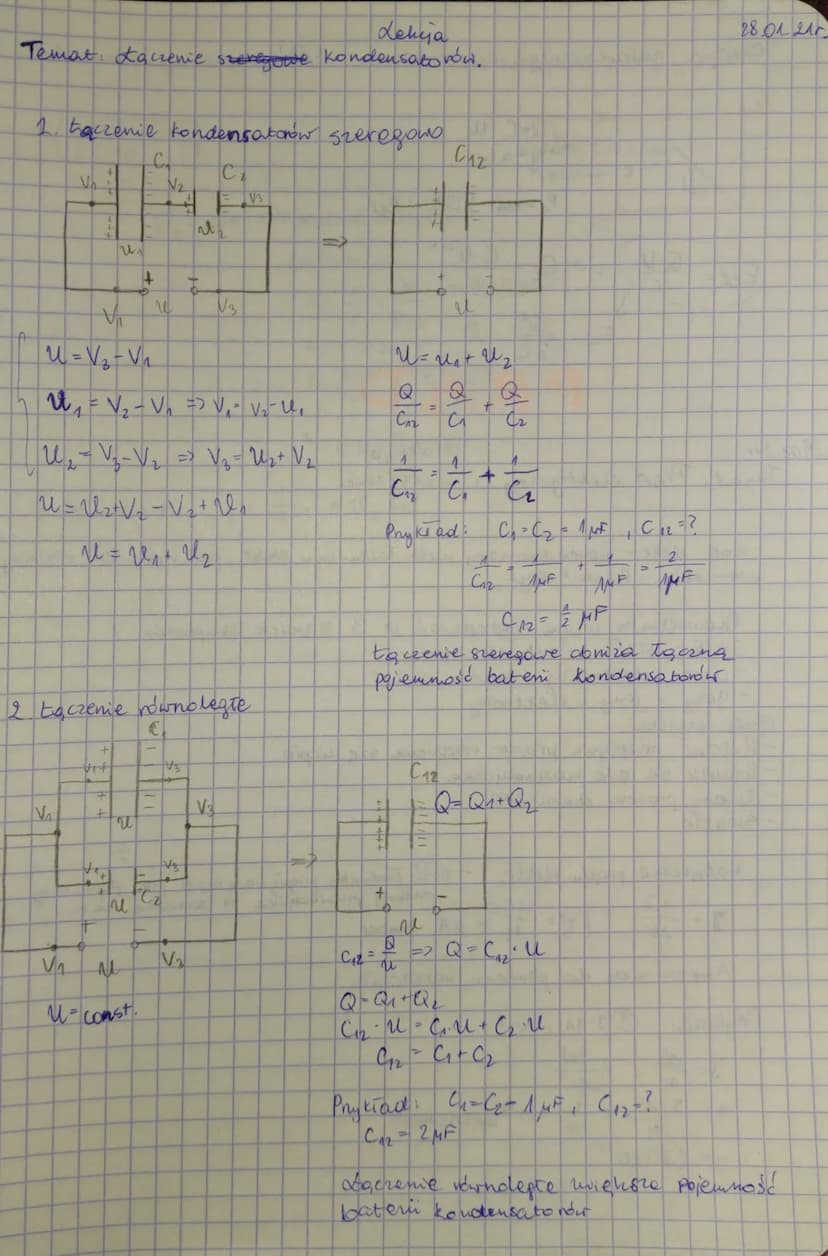 Lekcja 28.01.21r.
Temat: Łączenie szeregowe kondensatorów.
1. Łączenie kondensatorów szeregowo
C₁ C₂ C₁₂
V₁ V₂ V₃
U₁ U₂
+ − ⇒ + −
V₁ U V₃ U
U = V₃ − V₁
U₁ = V₂ − V₁ ⇒ V₁ = V₂ − U₁
U₂ = V₃ − V₂ ⇒ V₃ = U₂ + V₂
U = U₂ + V₂ − V₂ + U₁
U = U₁ + U₂
U = U₁ + U₂
Q/C₁₂ = Q/C₁ + Q/C₂
1/C₁₂ = 1/C₁ + 1/C₂
Przykład: C₁ = C₂ = 1μF, C₁₂ = ?
1/C₁₂ = 1/1μF + 1/1μF = 2/1μF
C₁₂ = ½ μF
Łączenie szeregowe obniża łączną
pojemność baterii kondensatorów
2 Łączenie równoległe
C₁
V₁ V₃
V₁ U V₃
V₁ V₃
U C₂
+ −
V₁ U V₃
U = const.
C₁₂
Q = Q₁ + Q₂
⇒
+ −
U
C₁₂ = Q/U ⇒ Q = C₁₂ · U
Q = Q₁ + Q₂
C₁₂ · U = C₁ · U + C₂ · U
C₁₂ = C₁ + C₂
Przykład: C₁ = C₂ = 1μF, C₁₂ = ?
C₁₂ = 2μF
Łączenie równoległe zwiększa pojemność
baterii kondensatorów